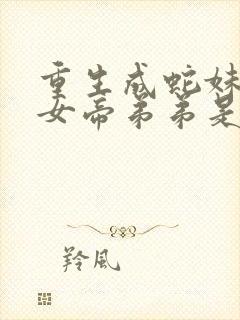 重生成蛇妹
女帝弟弟是
羚風